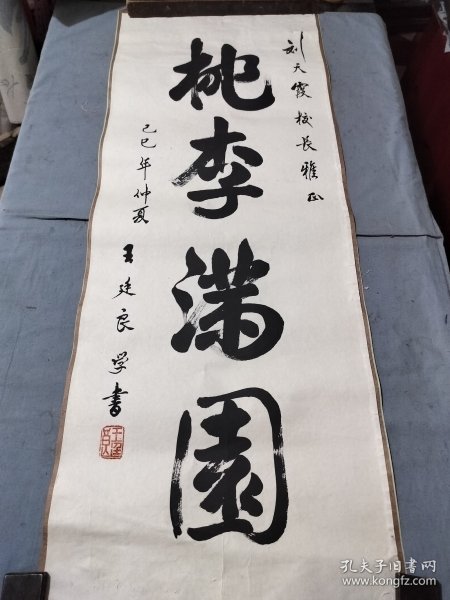 刘天霞校长雅正
桃李满園
己巳年仲夏
王廷良学书
孔夫子旧书网
www.kongfz.com